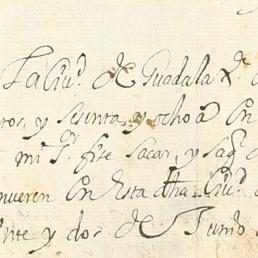 La Ciu.d de Guadalax.a
tos, y sesenta y ocho a en
mi S.or fise sacar, y saq.
mueren en esta dha Ciu.d
inte y dos de Junio